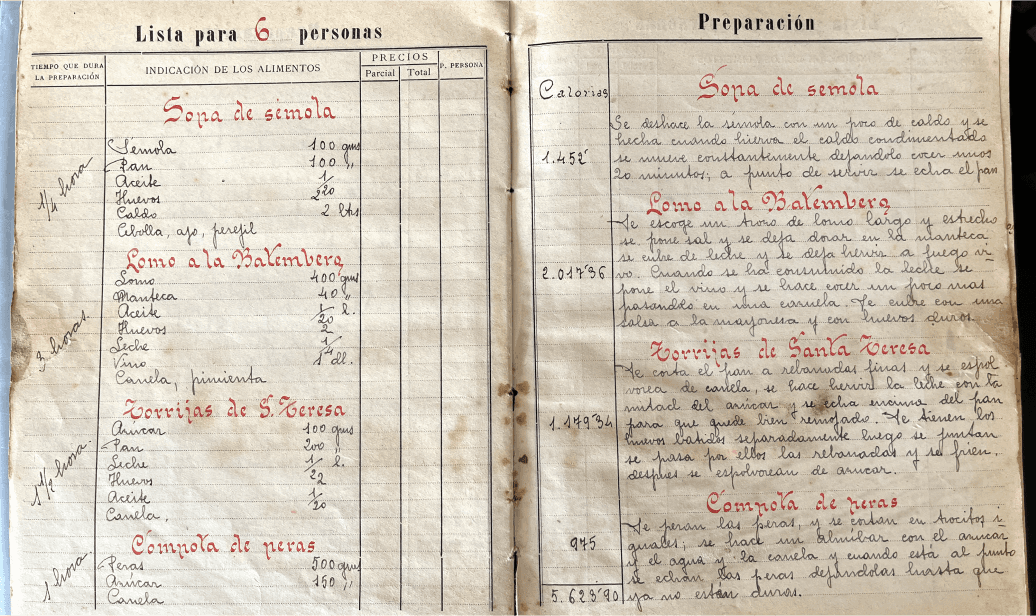 Lista para 6 personas
TIEMPO QUE DURA LA PREPARACIÓN
INDICACIÓN DE LOS ALIMENTOS
PRECIOS
Parcial Total
P. PERSONA
Sopa de sémola
1/4 hora
Sémola 100 gms
Pan 100 "
Aceite 1/20
Huevos 2
Caldo 2 lts
Cebolla, ajo, perejil
Lomo a la Batemberg
3 horas.
Lomo 400 gms
Manteca 40 "
Aceite 1/20 l.
Huevos 2
Leche 1/4
Vino 1 dl.
Canela, pimienta
Torrijas de S. Teresa
1 1/2 hora.
Azucar 100 gms
Pan 200 "
Leche 1/2 l.
Huevos 2
Aceite 1/20
Canela,
Compota de peras
1 hora.
Peras 500 gms
Azúcar 150 "
Canela
Preparación
Calorias
Sopa de sémola
Se deshace la sémola con un poco de caldo y se
hecha cuando hierva el caldo condimentado
1.452 se mueve constantemente dejandolo cocer unos
20 minutos; a punto de servir se echa el pan
Lomo a la Batemberg
Se escoge un trozo de lomo largo y estrecho
se pone sal y se deja dorar en la manteca
se cubre de leche y se deja hervir a fuego vi-
2.017'36 vo. Cuando se ha consumido la leche se
pone el vino y se hace cocer un poco mas
pasandolo en una cazuela. Se cubre con una
salsa a la mayonesa y con huevos duros.
Torrijas de Santa Teresa
Se corta el pan a rebanadas finas y se espol
vorea de canela, se hace hervir la leche con la
mitad del azúcar y se echa encima del pan
1.179'34 para que quede bien remojado. Se tienen los
huevos batidos separadamente luego se juntan
se pasa por ellos las rebanadas y se frien.
despues se espolvorean de azucar.
Compota de peras
Se peran las peras, y se cortan en trocitos i-
975 guales; se hace un almíbar con el azucar
y el agua y la canela y cuando está al punto
se echan las peras dejandolas hasta que
5.623'90 ya no están duras.